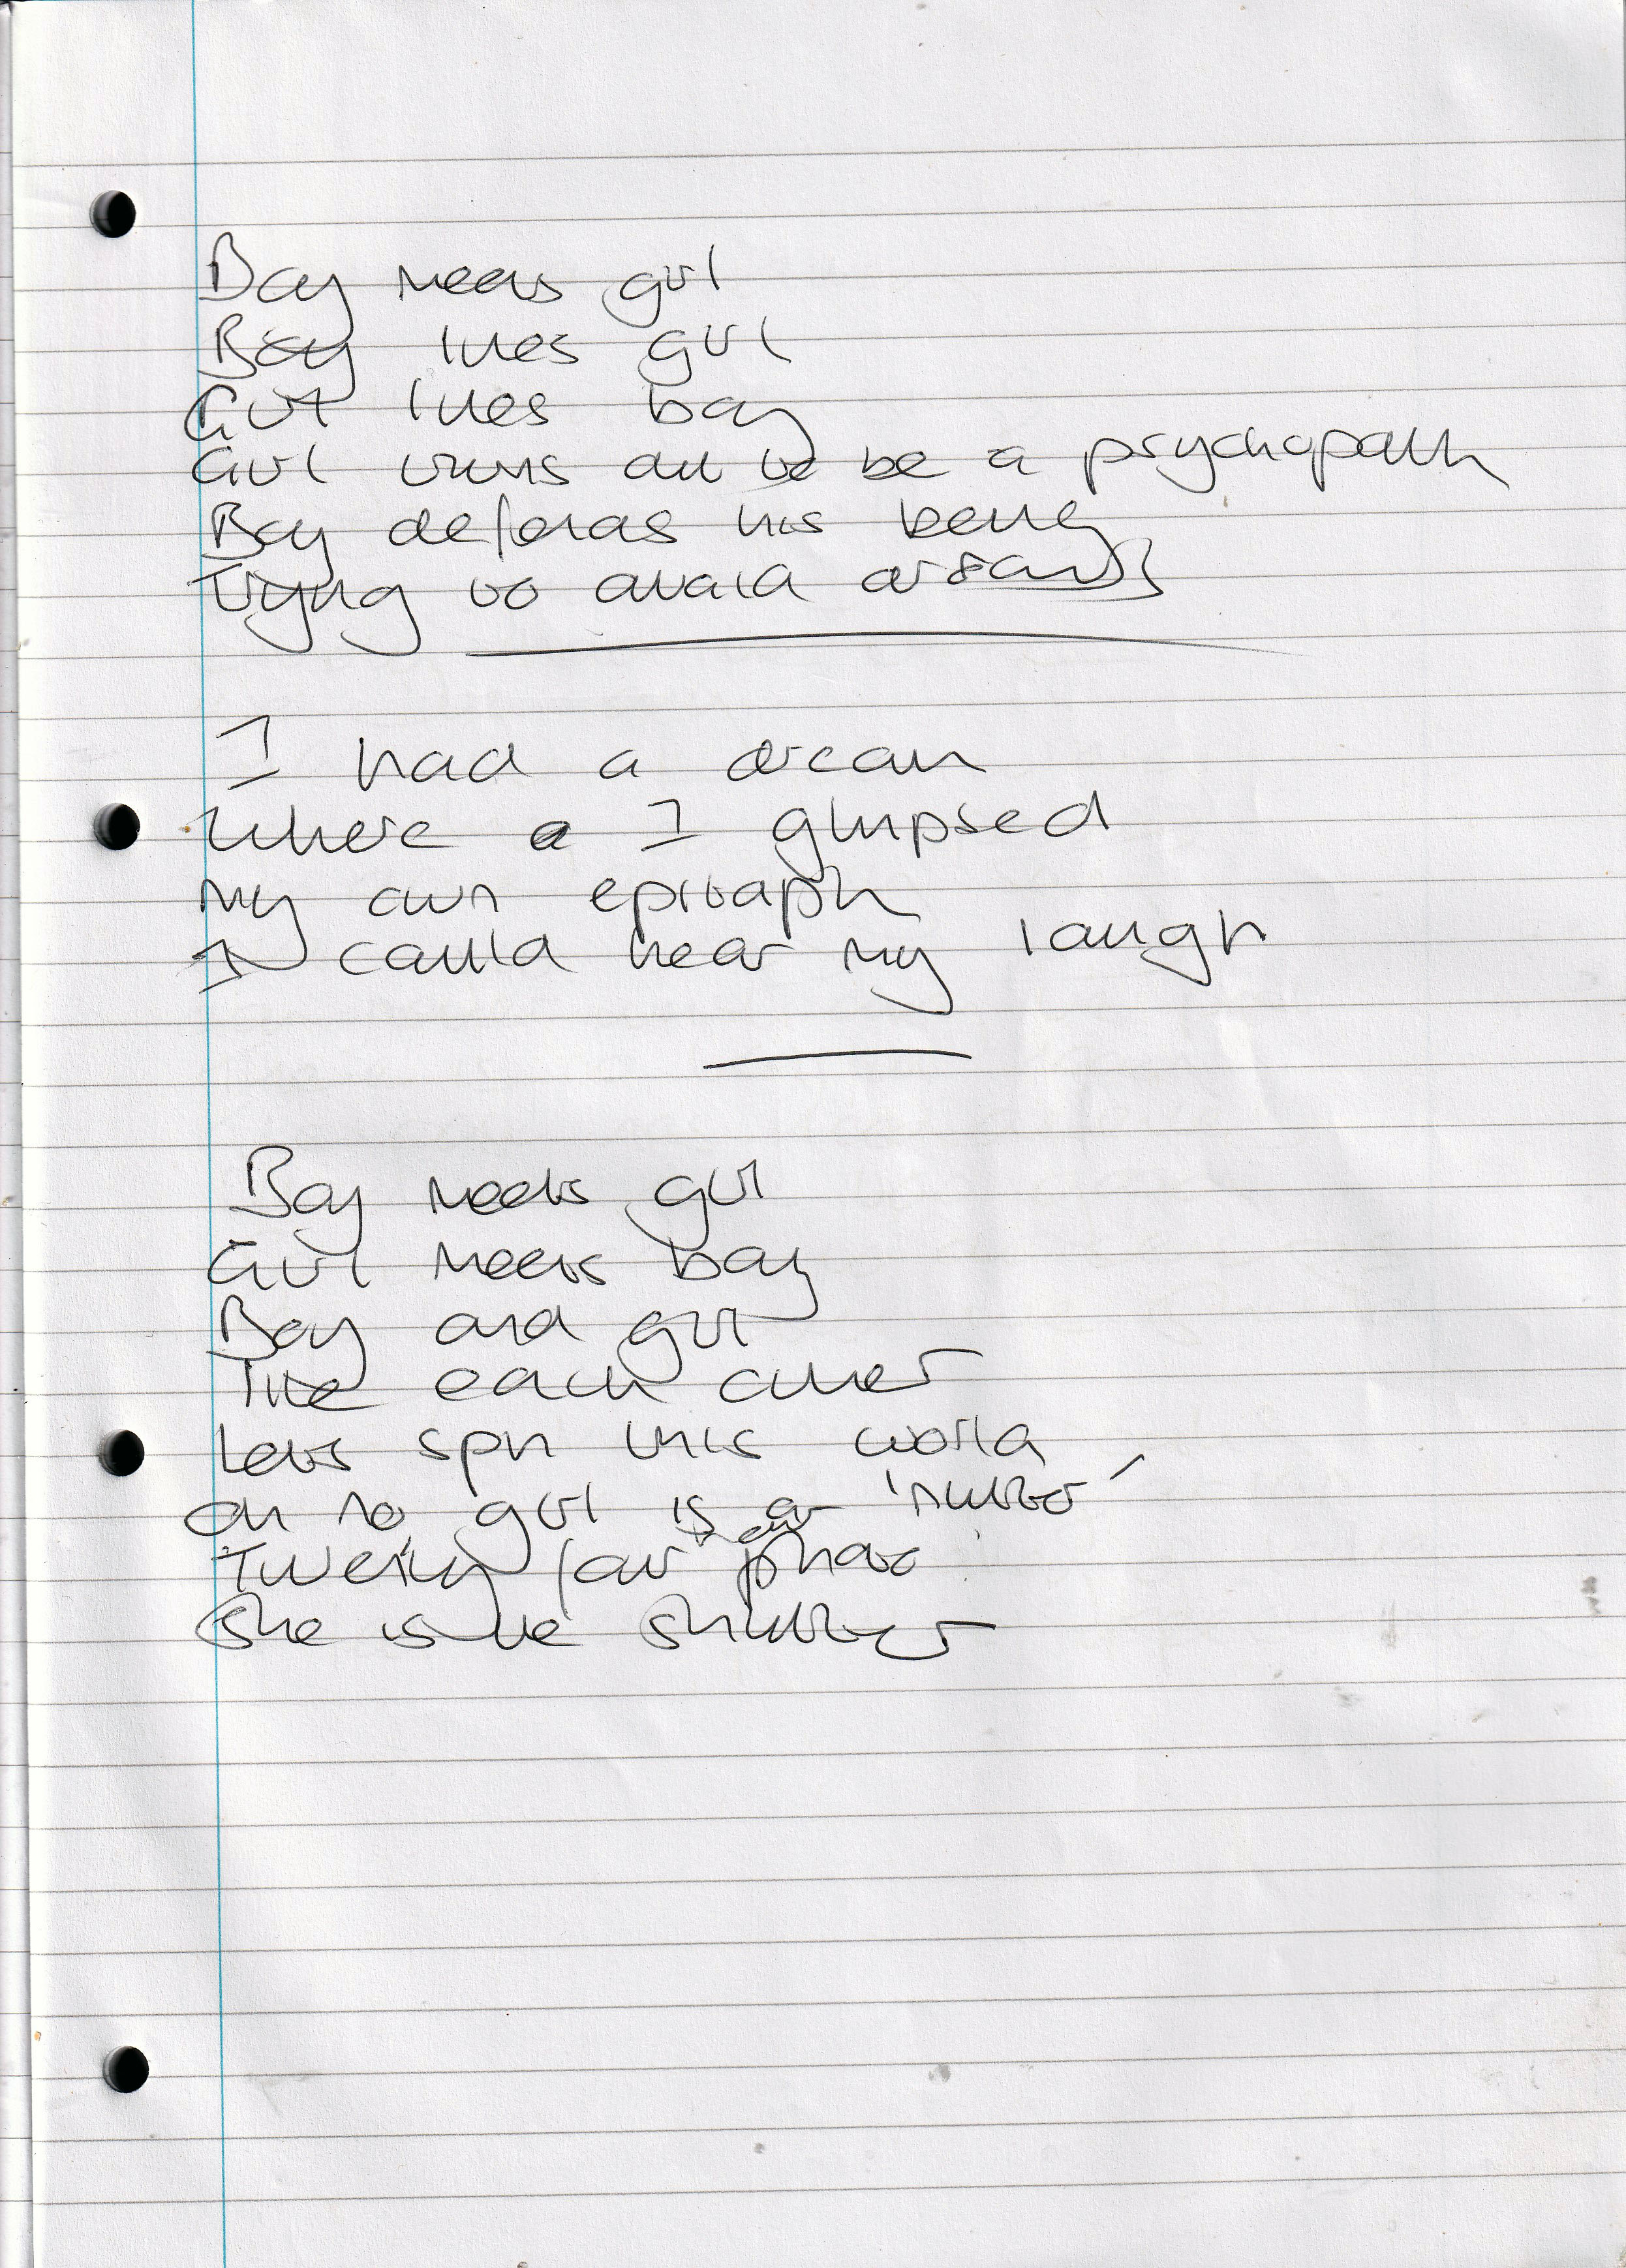 Boy meets girl
Boy likes girl
Girl likes boy
Girl turns out to be a psychopath
Boy defends his being
Trying to avoid
I had a dream
Where I glimpsed
My own epitaph
I could hear my laugh
Boy meets girl
Girl meets boy
Boy and girl
like each other
Lets spin this world
oh no girl is a 'nutter'
Twenty four
She is the shutter